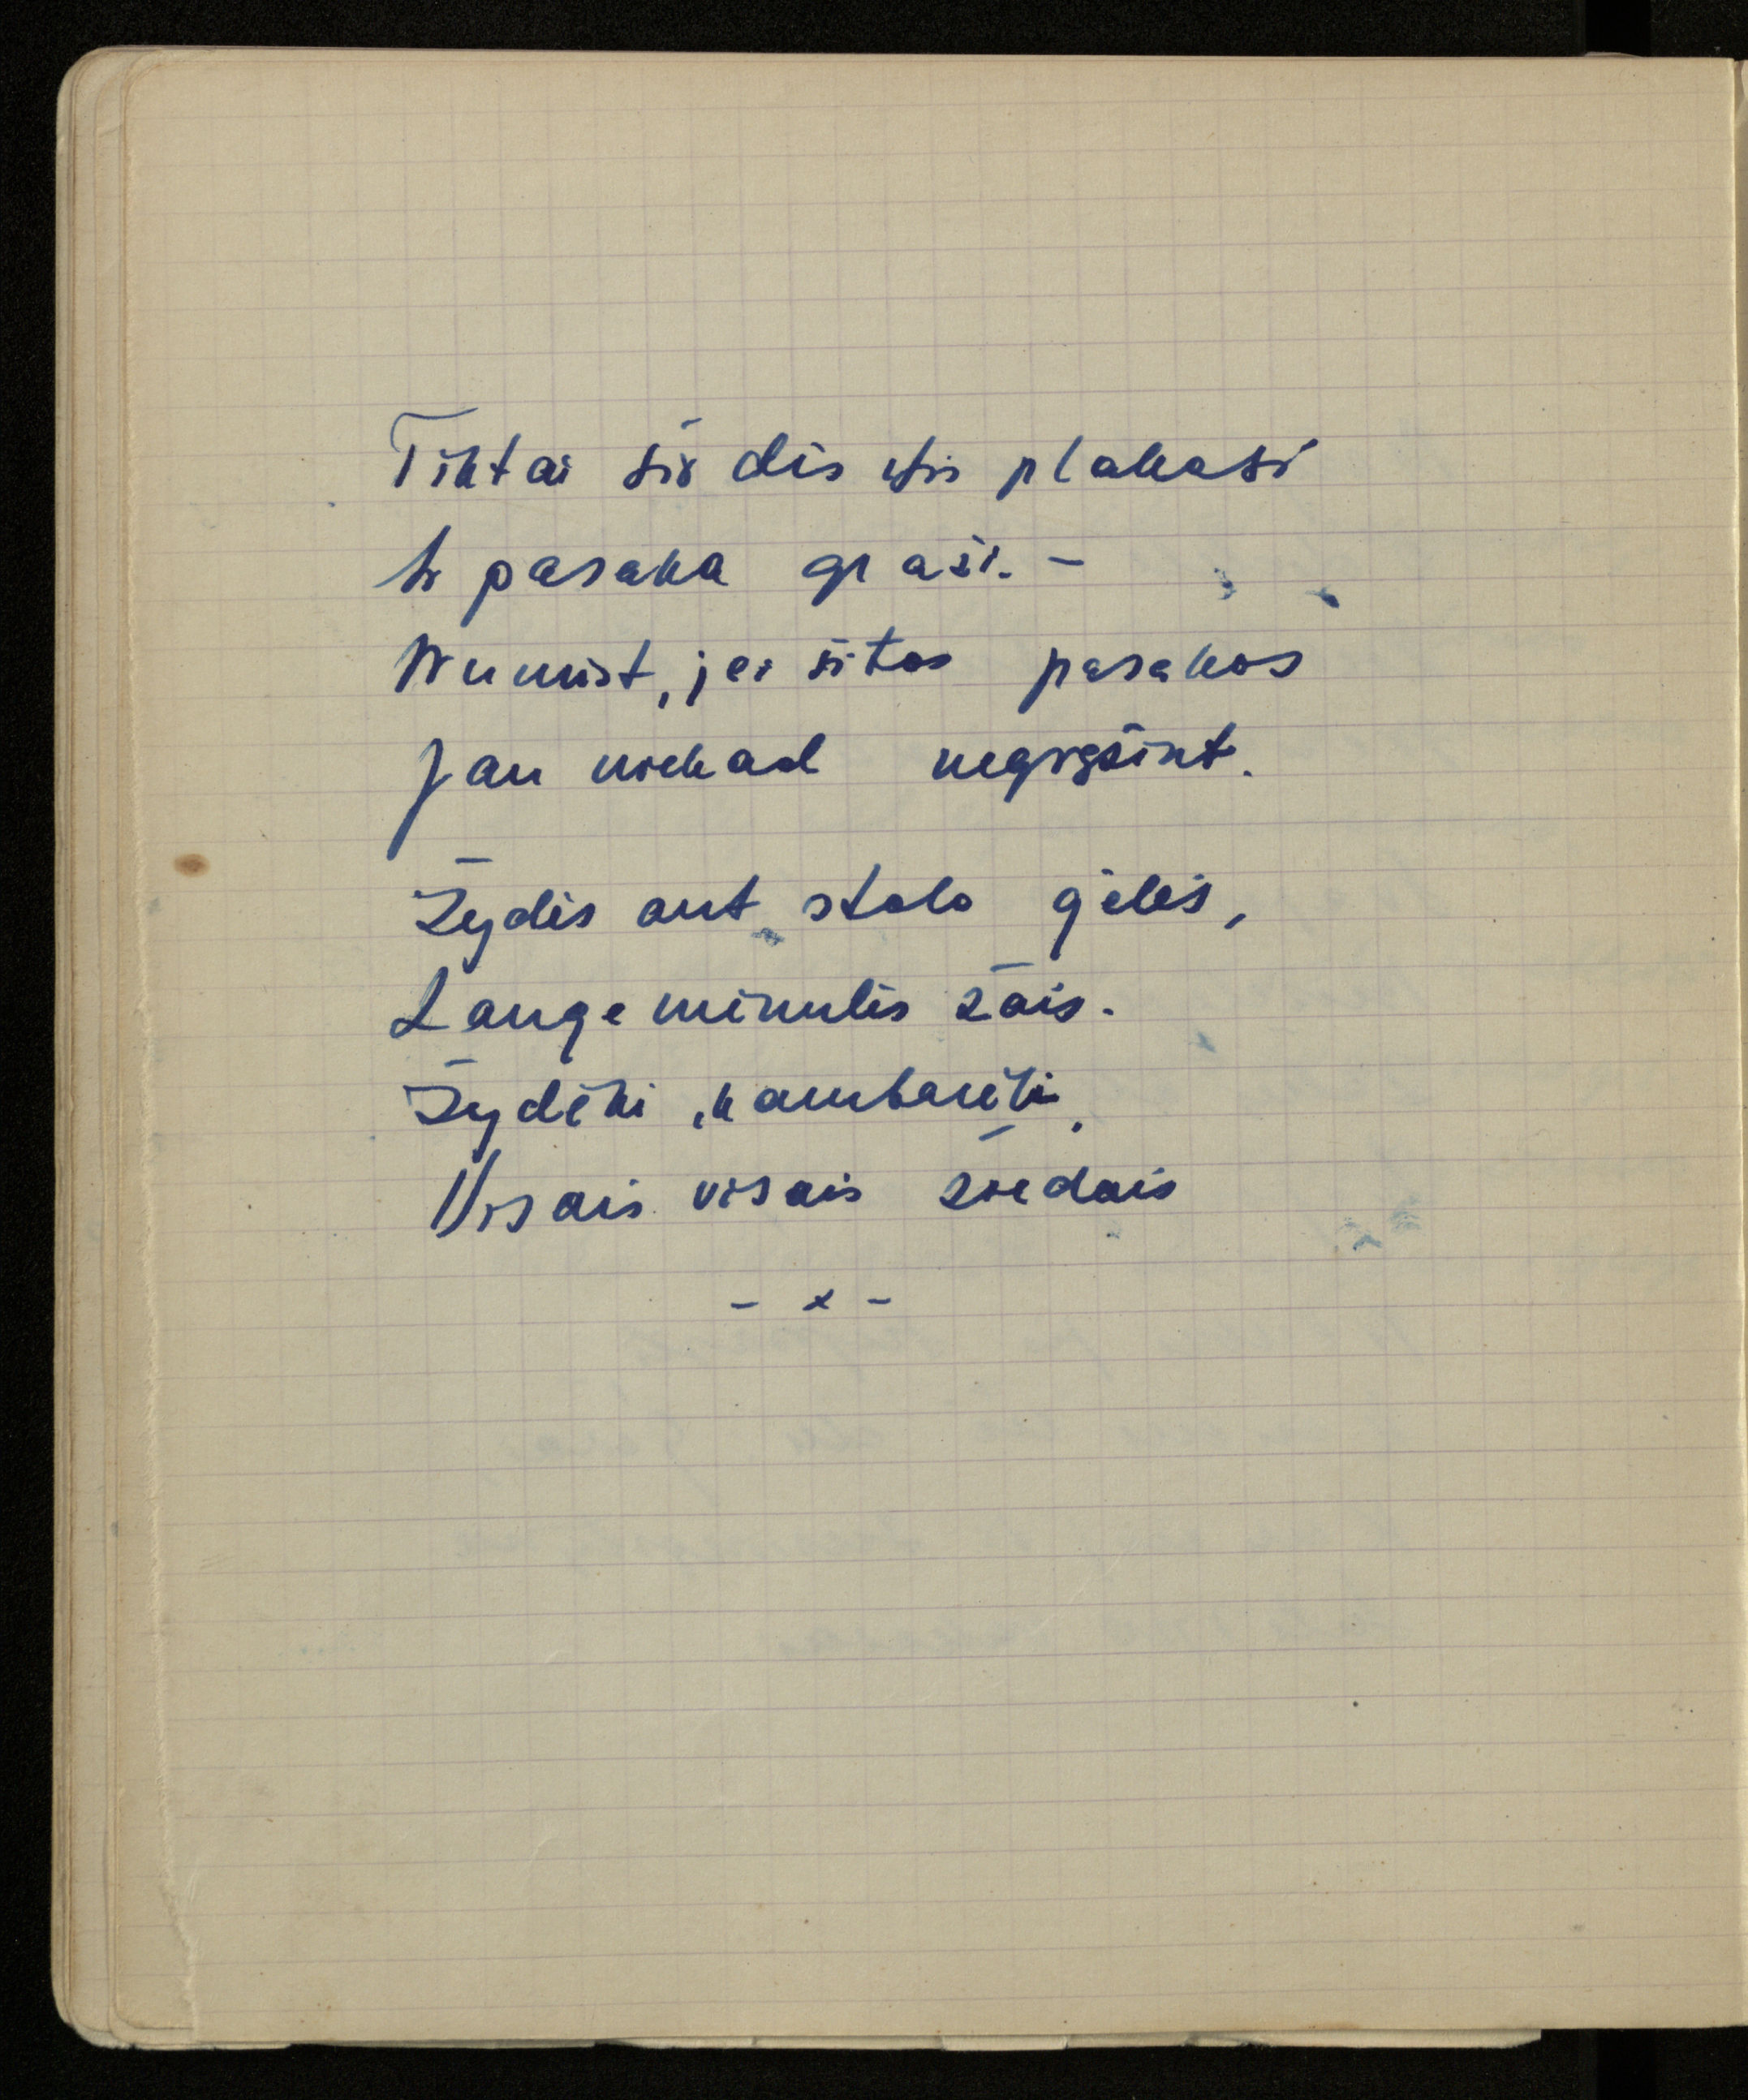 Tiktai širdis vis plakasi
Ir pasaka graži. –
Numirt, jei šitos pasakos
Jau niekad negrįžint.
Žydės ant stalo gėlės,
Lange mėnulis žais.
Žydėki, kambarėli,
Visais visais žiedais
- x -